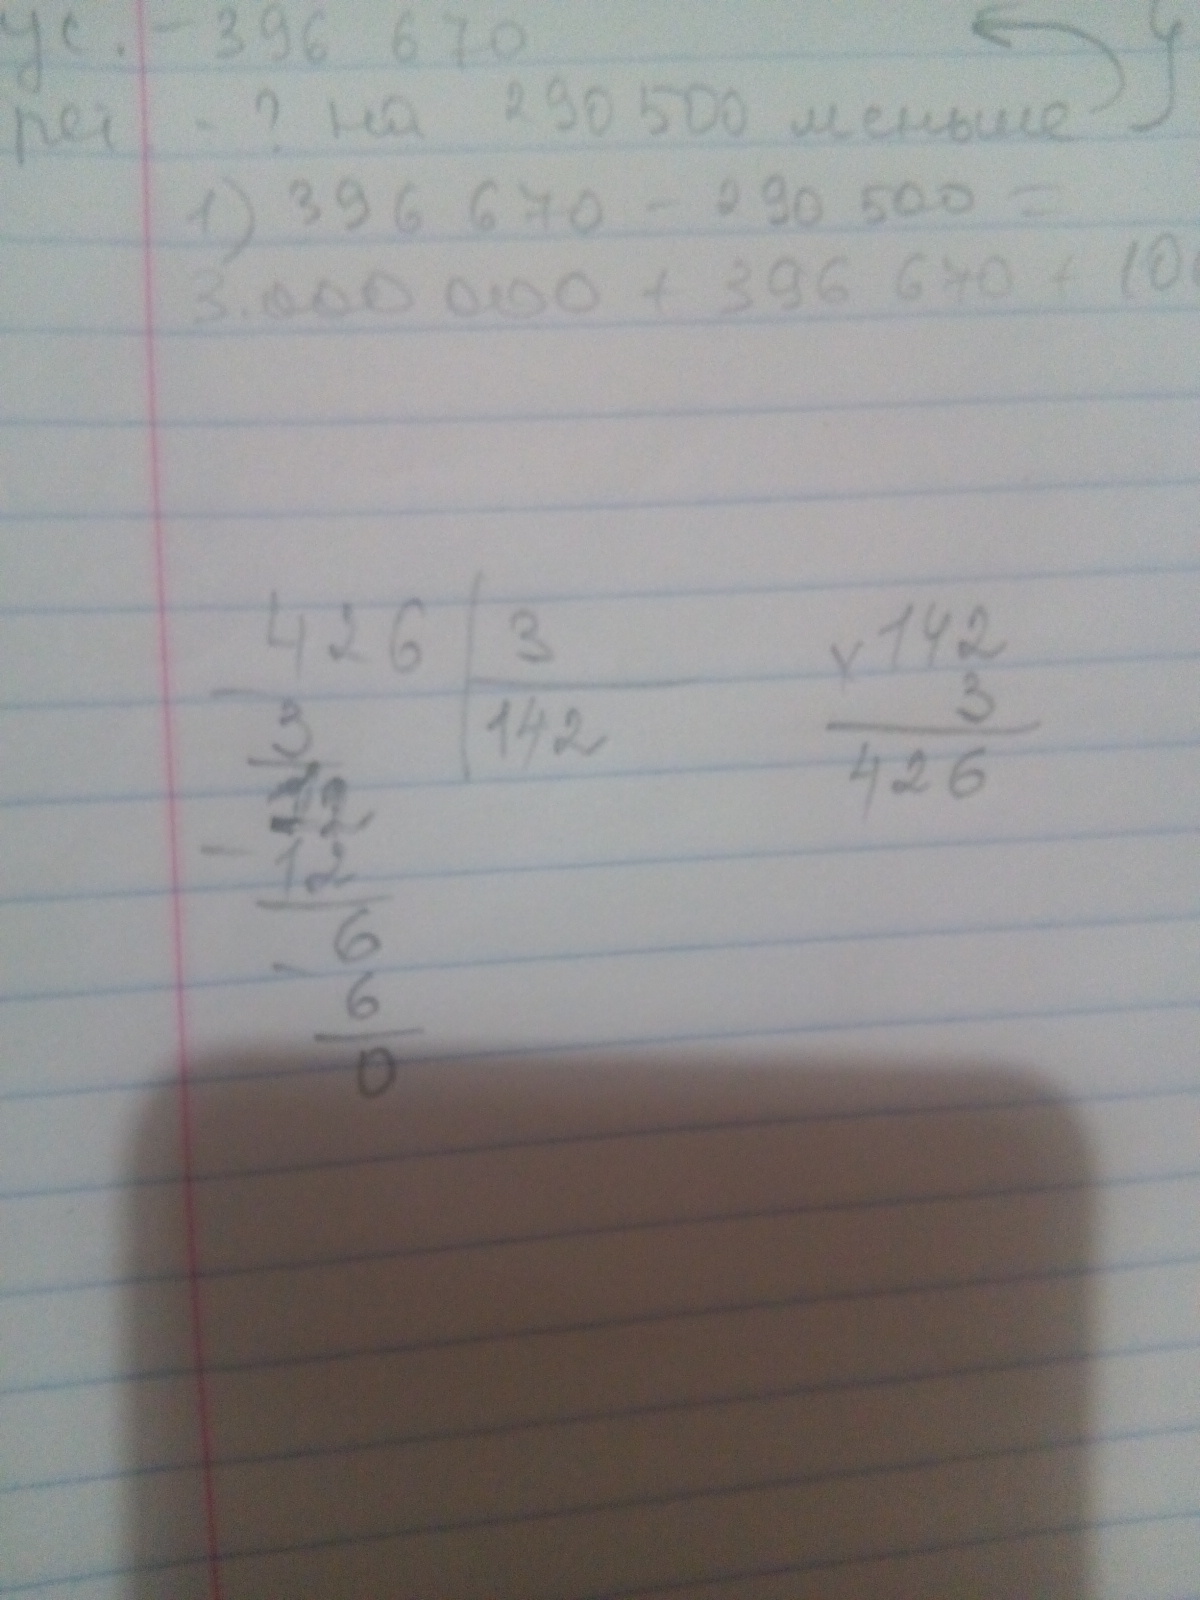 ус. - 396 670
рег - ? на 290 500 меньше
1) 396 670 - 290 500 =
3.000 000 + 396 670 + 10
426 | 3
3 | 142
12
- 12
- 6
6
0
x 142
3
426